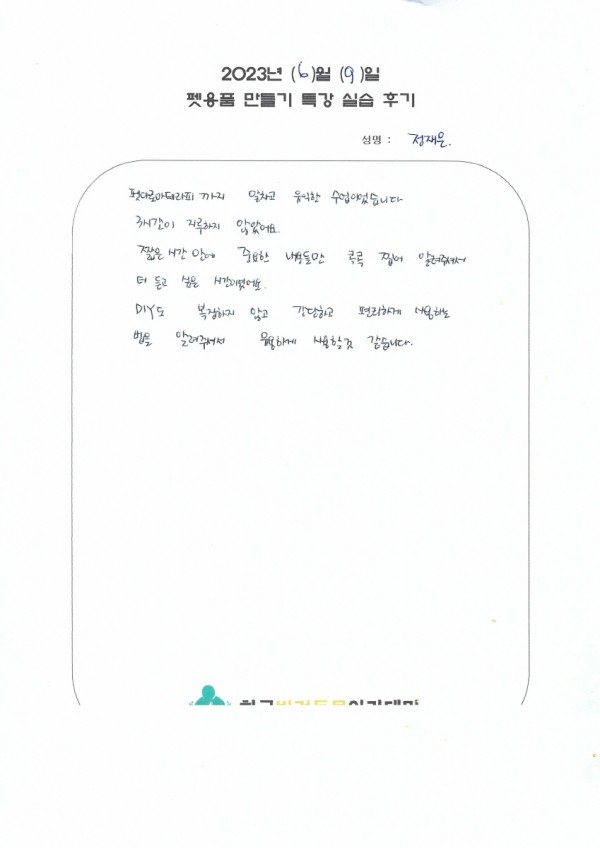 2023년 (6)월 (9)일
펫용품 만들기 특강 실습 후기
성명 : 정재은.
펫아로마테라피 까지 알차고 유익한 수업이었습니다
3시간이 지루하지 않았어요.
짧은 시간 안에 중요한 내용들만 콕콕 찝어 알려주셔서
더 듣고 싶은 시간이었어요.
DIY도 복잡하지 않고 간단하고 편리하게 사용하는
법을 알려주셔서 유용하게 사용할것 같습니다.